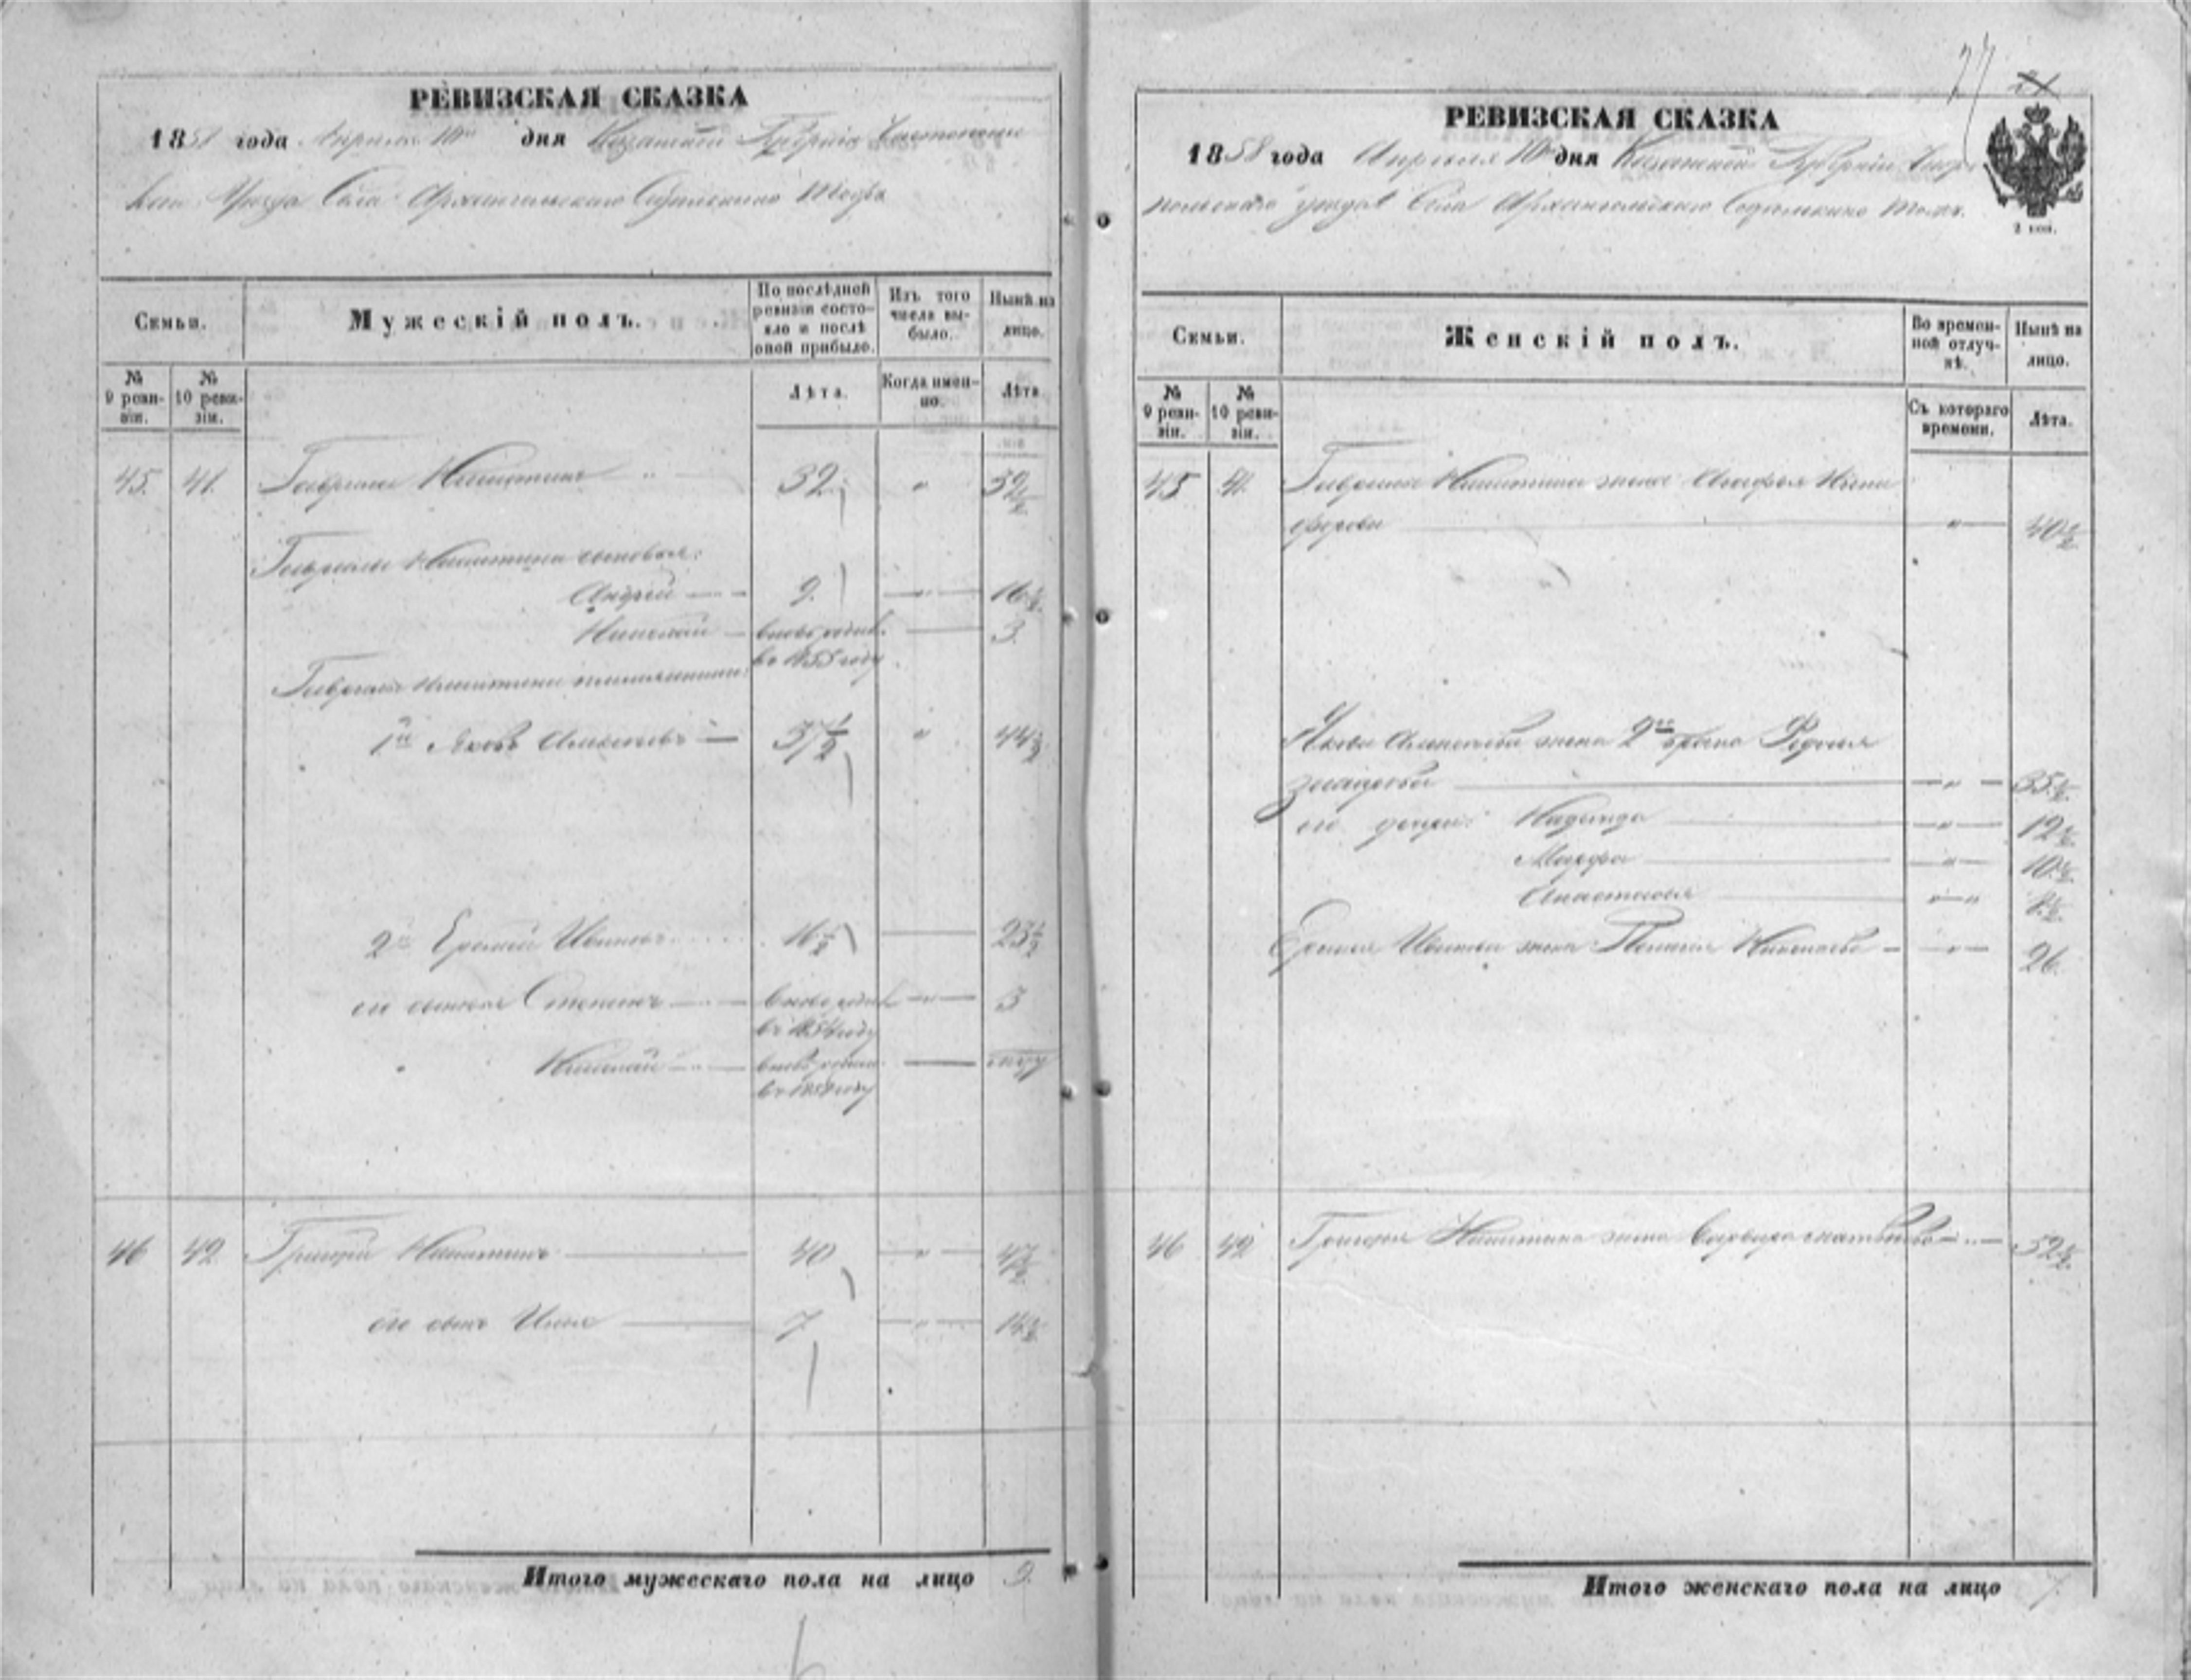 РЕВИЗСКАЯ СКАЗКА
1858 года Апреля 10го дня Казанской Губернии Чистополь
ского Уезда Села Архангельского
Семьи.
Мужескій полъ.
По послѣдней ревизіи состояло и послѣ оной прибыло.
Изъ того числа выбыло.
Нынѣ на лицо.
№ 9 ревизіи.
№ 10 ревизіи.
Лѣта.
Когда именно.
Лѣта.
45. 41. Гаврило Никитинъ 32. " 32 1/2
Гаврилы Никитина сыновья:
Андрей 9. " 16 1/2
Николай вновь рожд. 3.
въ 1855 году
Гаврилы Никитина племянники:
1й Яковъ Алексеевъ 37 1/2 " 44 1/2
2й Еремей Ивановъ 16 1/2 23 1/2
его сыновья Степанъ вновь рожд. " 3
въ 1854 году
Николай вновь рожд.
въ 1858 году
46 42. Григорий Никитинъ 40 " 47 1/2
его сынъ Илья 7. " 14 1/2
Итого мужескаго пола на лицо 9.
27
РЕВИЗСКАЯ СКАЗКА
1858 года Апреля 10го дня Казанской Губернии Чисто
польскаго уезда Села Архангельскаго
2 коп.
Семьи.
Женскій полъ.
Во временной отлучкѣ.
Нынѣ на лицо.
№ 9 ревизіи.
№ 10 ревизіи.
Съ котораго времени.
Лѣта.
45 41. Гаврилы Никитина жена Агафья Ники
форова " 40 1/2
Якова Алексеева жена 2го брака Федосья
" 35 1/2
его дочери: Надежда " 12 1/2
Марфа " 10 1/2
Анастасья " 8 1/2
Еремея Иванова жена Пелагея Николаева " 26.
46 42 Григория Никитина жена Варвара Матвеева 52 1/2
Итого женскаго пола на лицо 7.